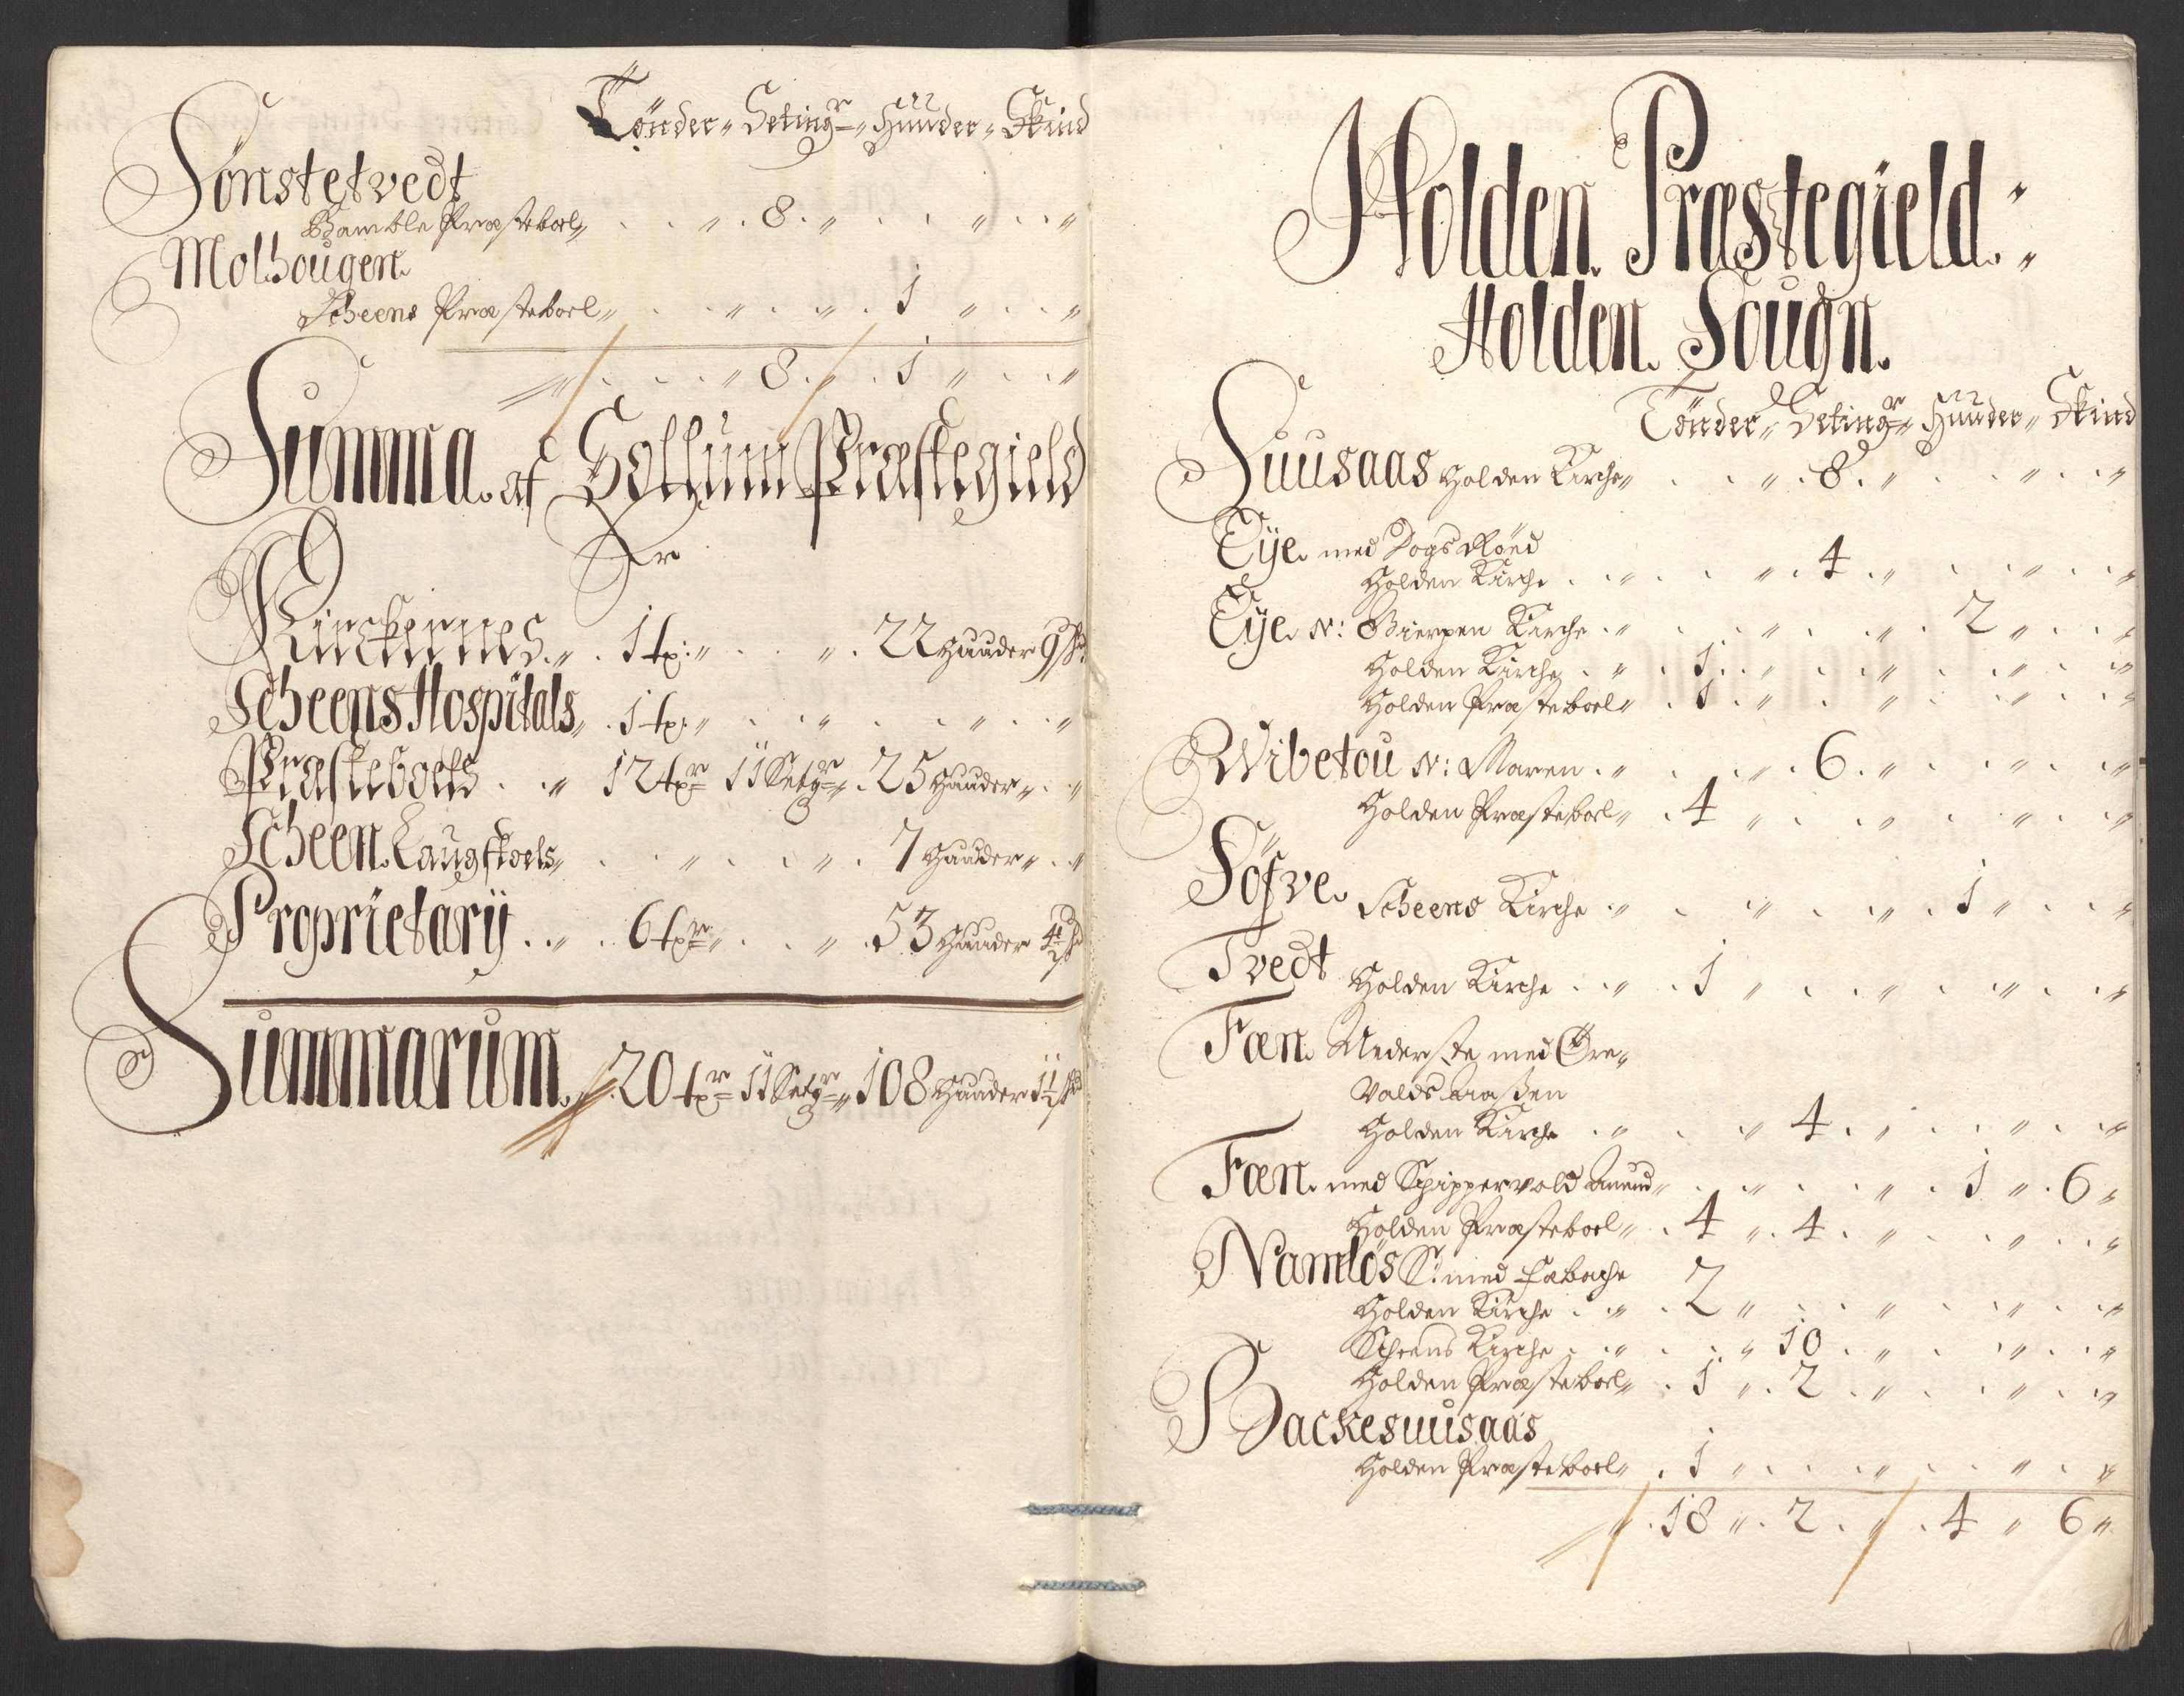 Tönder„ Setingr„ Huuder„ Skind
Sönstetvedt
Bamble Præsteboel„ . . „ . 8 . „ . . „ . . „
Molhougen.
Scheens Præsteboel„ . . „ . „ . 1 „ . . „
„ . . . „ 8 . „ . 1 „ . . „
Summa. af Sollum Præstegield
Er
Kirckernes. „ . 1 tø: „ . . „ . 22 Huuder 9 sk:
Scheens Hospitals„ . 1 tø: „ . . „ . . „ . . „
Præsteboels . . „ 12 tør 11 Setgr„ . 25 Huuder„ . „
Scheen Laugstoels„ . . „ . . „ . 7 Huuder„ . „
Proprietarij . . „ . 6 tør„ . . „ . 53 Huuder 4½ sk
Summarum. „ 20 tør 11 Setgr„ 108 Huuder 1½ sk
Holden Præstegield. „
Holden Sougn.
Tönder„ Setingr„ Huuder„ Skind
Suusaas Holden Kirche„ . . „ . 8 . „ . . „ . . „
Eye. med Dogs Röed
Holden Kirche . . „ . . „ . 4 . „ . . „ . . „
Eye. N: Gierpen Kirche . „ . . „ . . „ . 2 „ . . „
Holden Kirche . „ . 1 . „ . . „ . . „ . . „
Holden Præsteboel„ . 1 . „ . „ . . „ . . „
Wibetou N: Maren . „ . . „ . 6 . „ . . „ . . „
Holden Præsteboel„ . 4 „ . . „ . . „ . . „
Söfve. Scheens Kirche . „ . . „ . . „ . 1 „ . . „
Tvedt Holden Kirche . . „ . 1 „ . . „ . . „ . . „
Fæn. Nederste med Öre„
Valds Aaßen
Holden Kirche . „ . . „ 4 . „ . . „ . . „
Fæn. med Schippervold Amund„ . . „ . . „ . 1 „ . 6 „
Holden Præsteboel„ . 4 „ . 4 . „ . . „ . . „
Namlös S: med 2
Holden Kirche . „ . 2 „ . . „ . . „ . . „
Scheens Kirche . „ . . „ 10 . „ . . „ . . „
Holden Præsteboel„ . 1 „ . 2 . „ . . „ . . „
Backesuusaas
Holden Præsteboel„ . 1 „ . . „ . . „ . . „
„ . 18 „ . 2 . „ . 4 „ 6 „